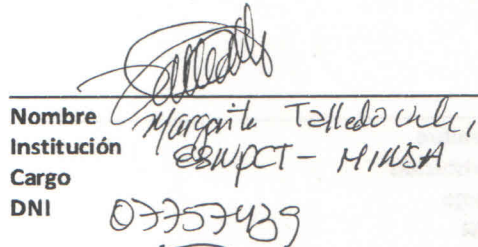 Nombre Margarita Talledo
Institución ESNPCT - MINSA
Cargo
DNI 07757439